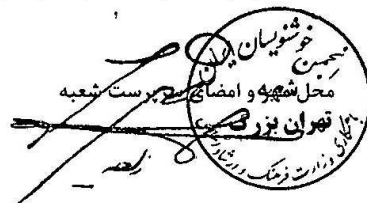 انجمن خوشنویسان ایران
محل مهر و امضای سرپرست شعبه
تهران بزرگ
با همکاری وزارت فرهنگ و ارشاد